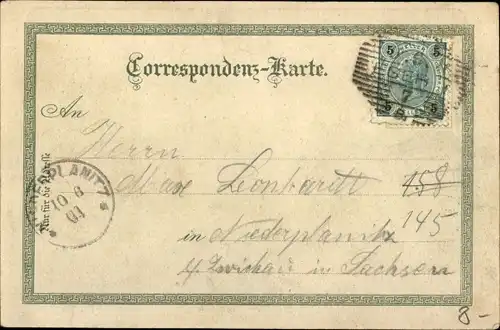 5 5
5 5
Correspondenz-Karte.
An
Herrn
Max Leonhardt 158
145
in Niederplanitz
b/ Zwickau in Sachsen
Nur für die Adresse
NIEDERPLANITZ
10 6
01
8-